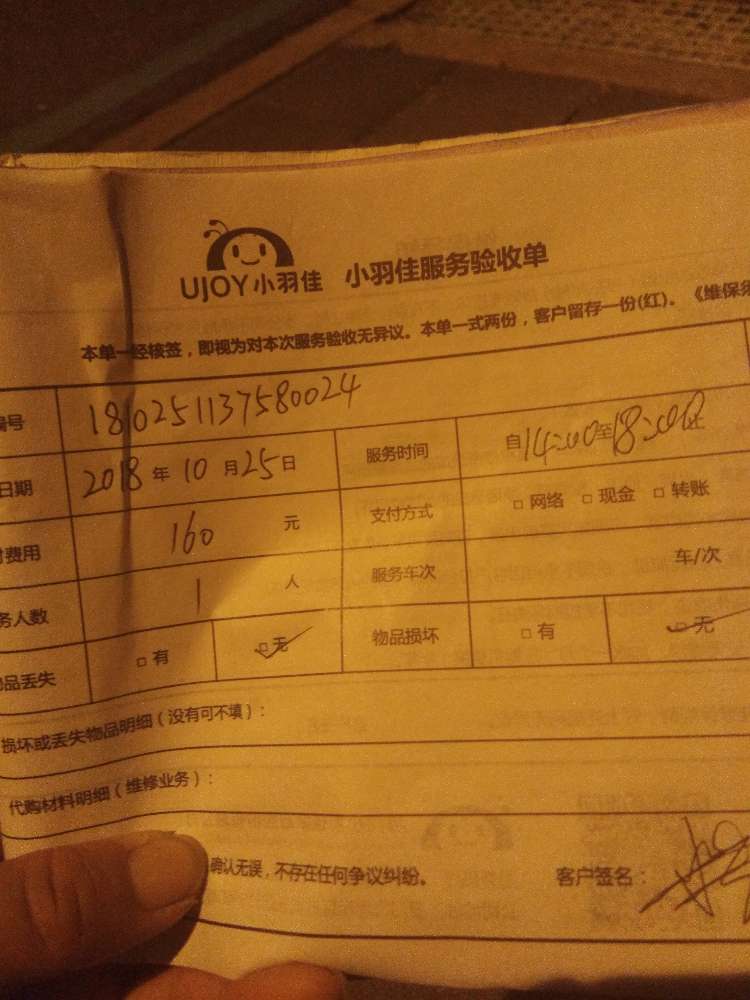 UJOY小羽佳 小羽佳服务验收单
本单一经核签，即视为对本次服务验收无异议。本单一式两份，客户留存一份(红)。《维保须
编号 1810251137580024
日期 2018年10月25日 服务时间 自14:00至18:00止
付费用 160 元 支付方式 □网络 □现金 □转账
务人数 1 人 服务车次 车/次
品丢失 □有 □无 物品损坏 □有 □无
损坏或丢失物品明细（没有可不填）：
代购材料明细（维修业务）：
确认无误，不存在任何争议纠纷。 客户签名：